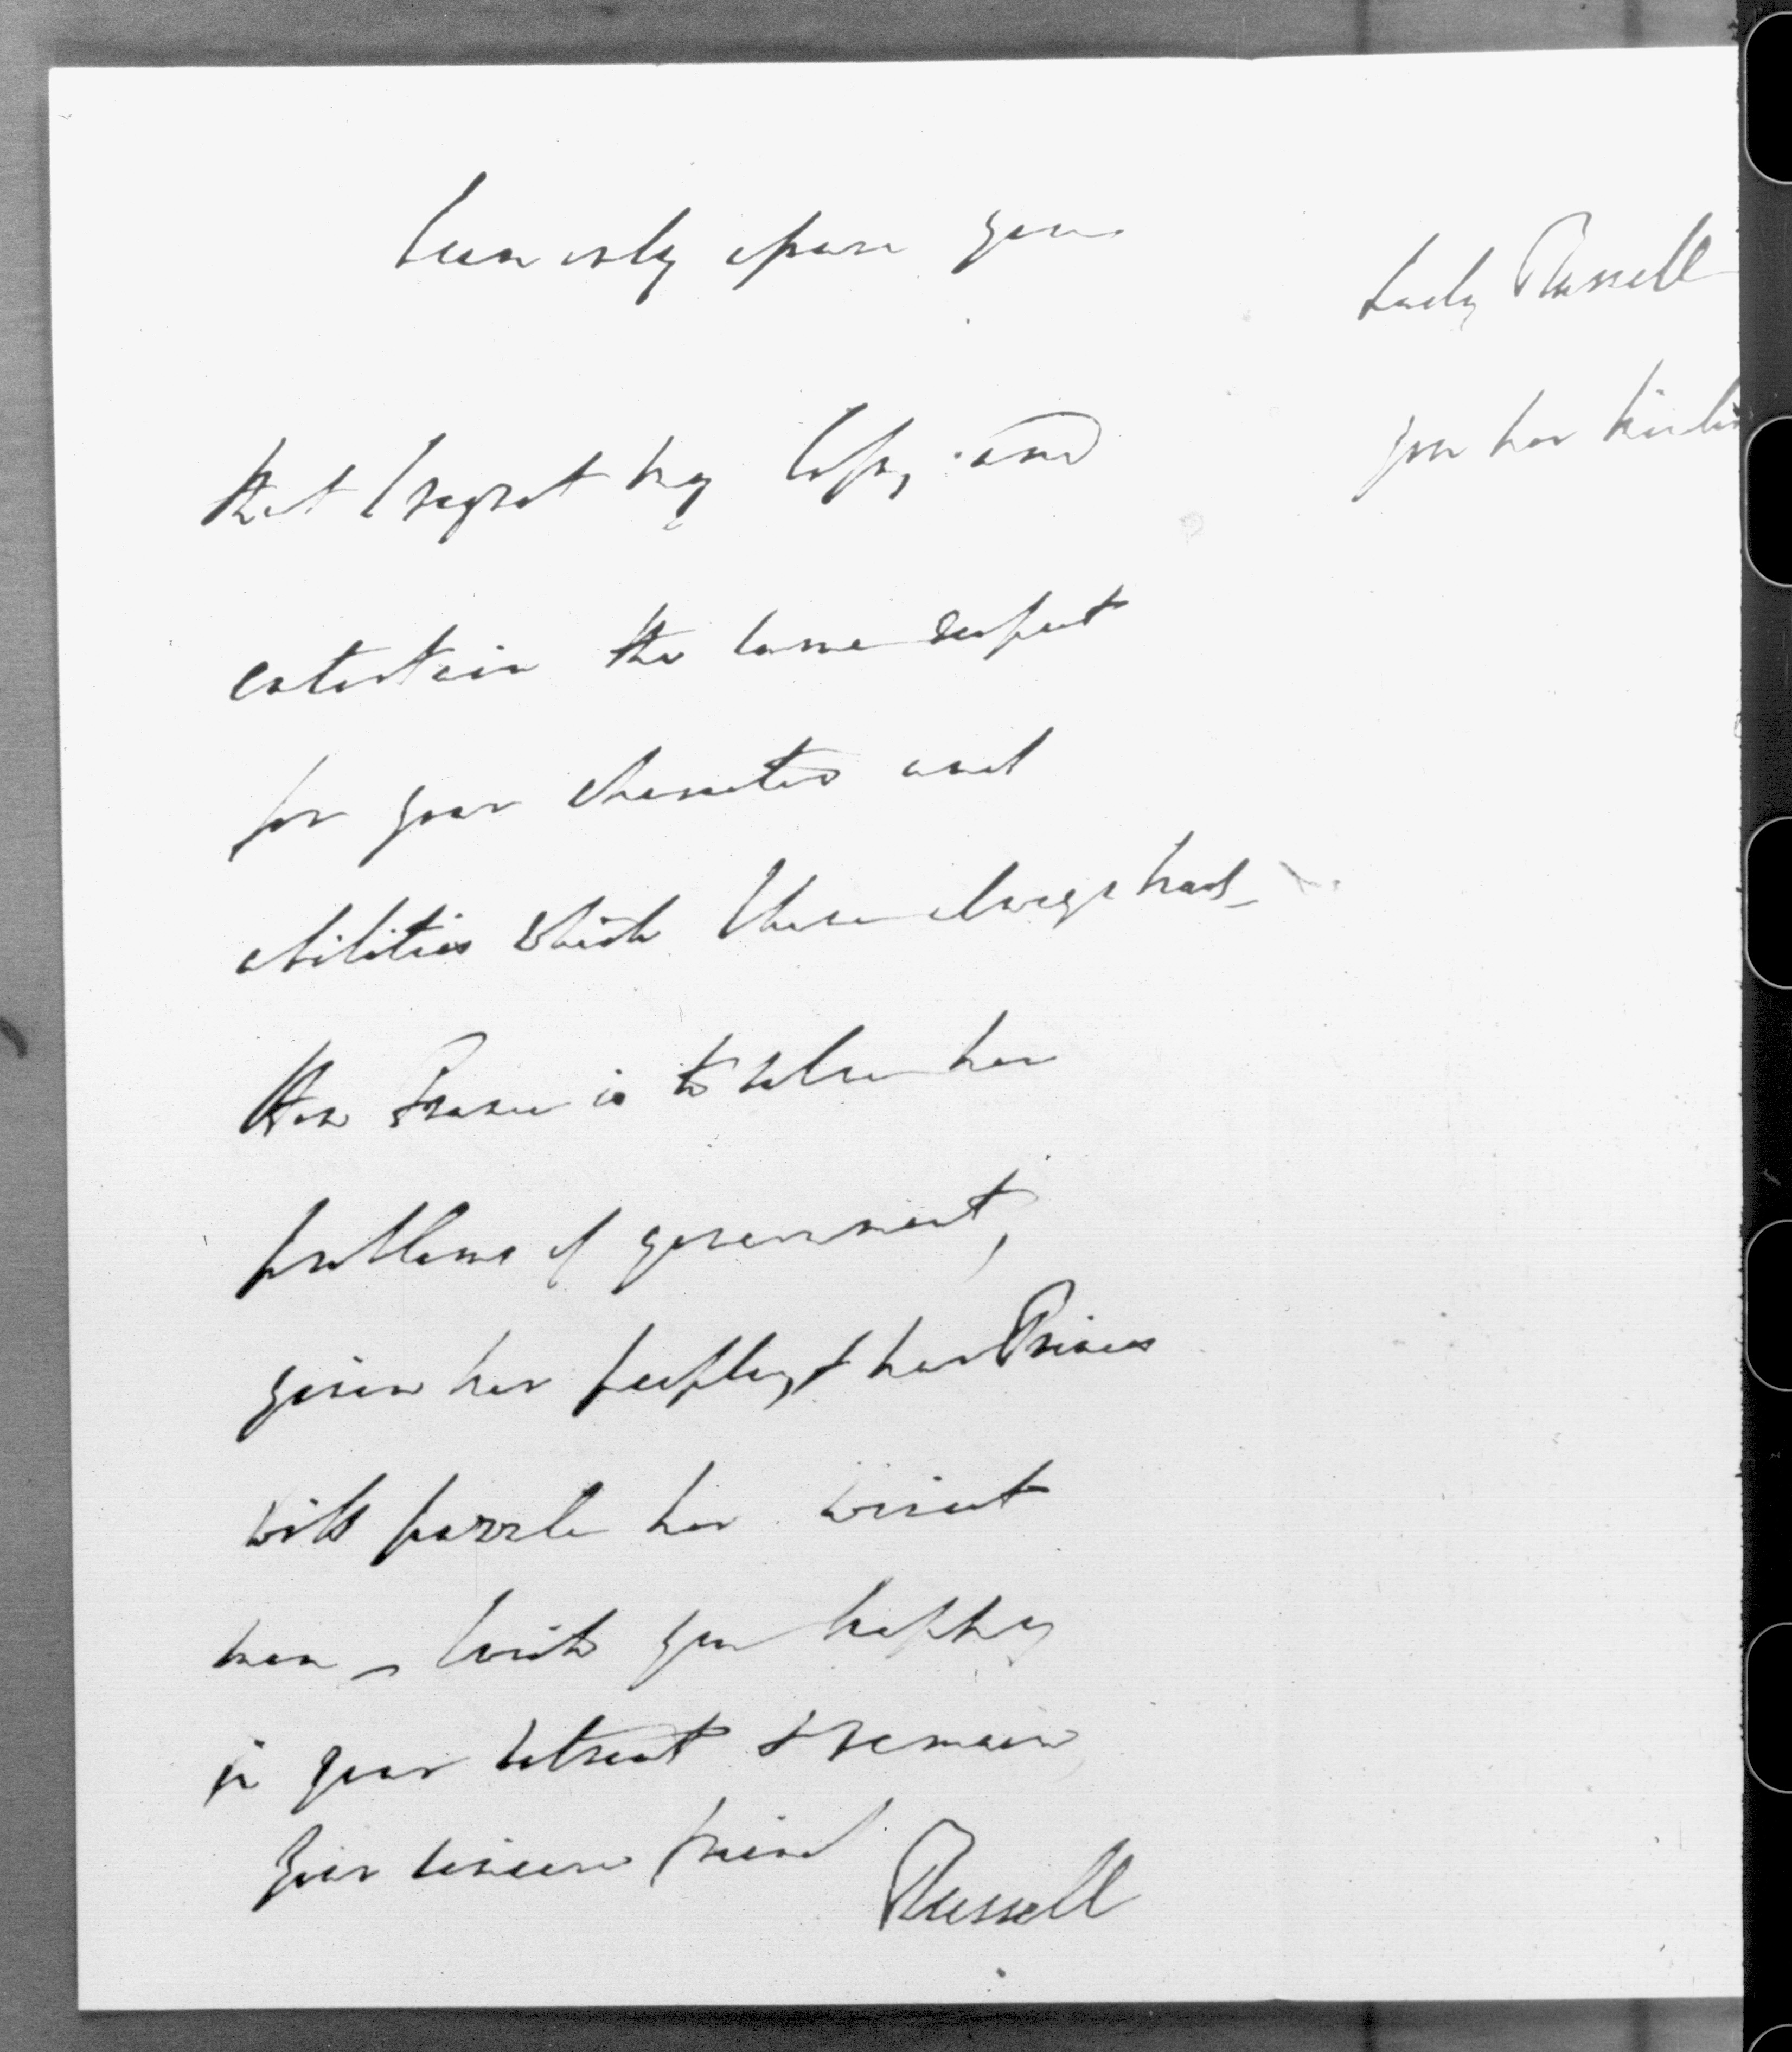 I can only assure you
that I regret my loss, and
entertain the same respect
for your character and
abilities which I have always had_
How France is to solve her
problems of government,
given her people, & her Princes
will puzzle her wisest
men _ I wish you happy
in your retreat & remain
your sincere friend
Russell
Lady Russell
you her kindest